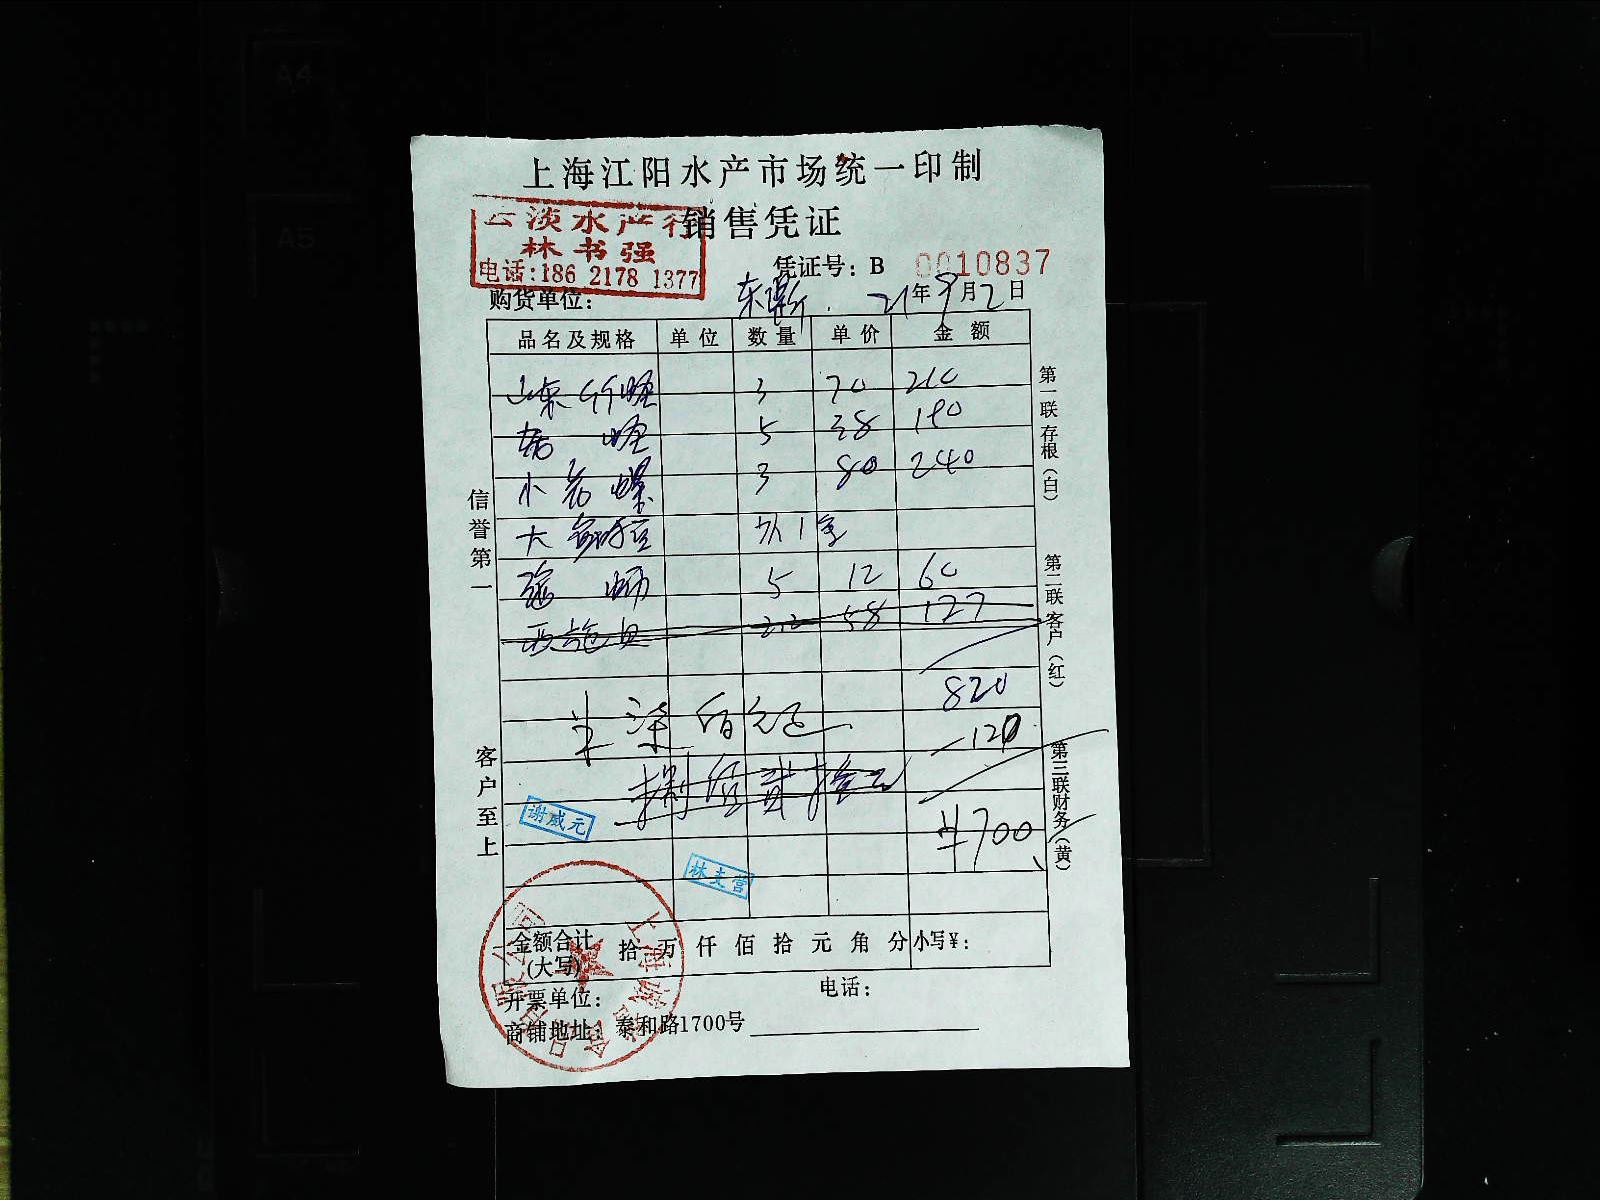 A4
A5
上海江阳水产市场统一印制
销售凭证
云淡水产行
林书强
电话:186 2178 1377
凭证号: B 0010837
购货单位: 21年9月2日
品名及规格 单位 数量 单价 金额
山东竹蛏 3 70 210
蛏 5 38 190
小花螺 3 80 240
大
5 12 60
西施贝 2.2 58 127
820
柒佰元正
-120
捌佰贰拾元
¥700
谢威元
林支营
金额合计(大写) 拾 万 仟 佰 拾 元 角 分 小写¥:
开票单位: 电话:
商铺地址: 泰和路1700号
信誉第一
客户至上
第一联存根(白)
第二联客户(红)
第三联财务(黄)